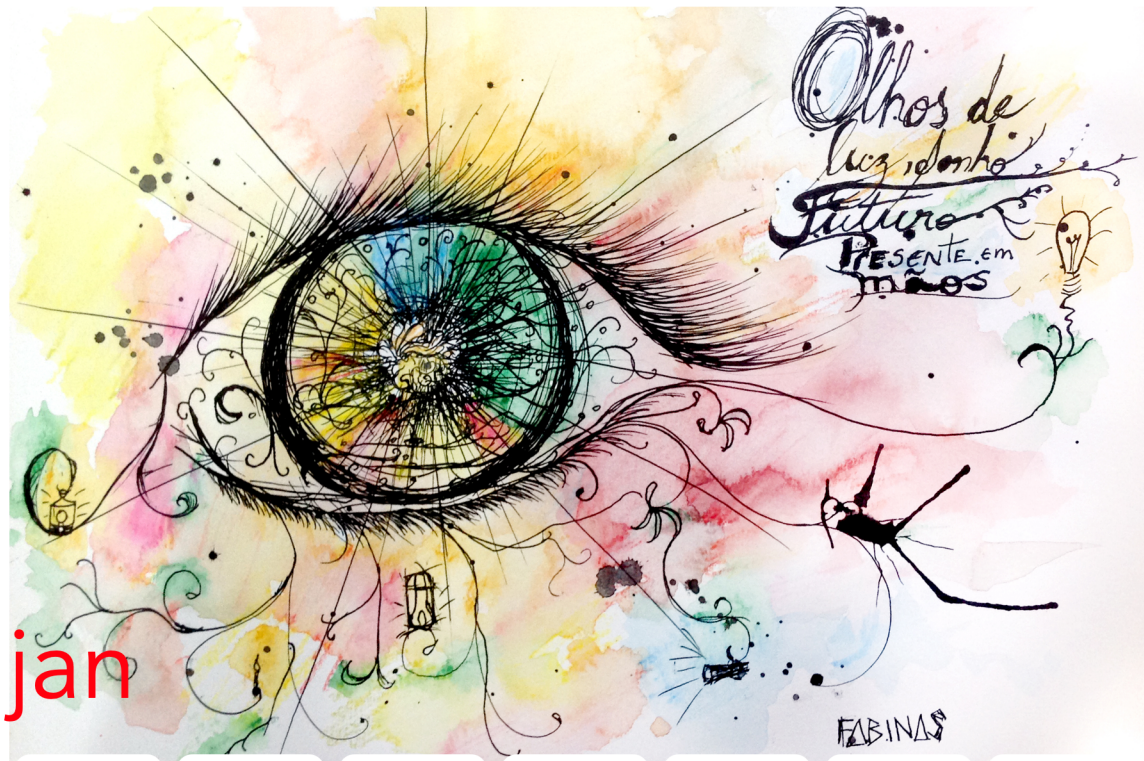 Olhos de
luz, sonho
Futuro
PRESENTE.em
mãos
jan
FABINAS